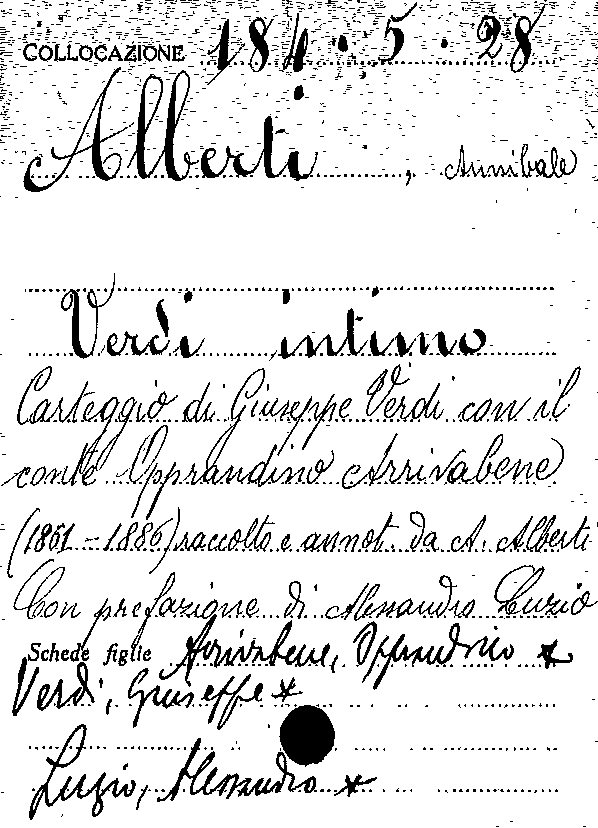 COLLOCAZIONE 184.5.28
Alberti, Annibale
Verdi intimo
Carteggio di Giuseppe Verdi con il
conte Opprandino Arrivabene
(1861-1886) raccolto e annot. da A. Alberti
Con prefazione di Alessandro Luzio
Schede figlie Arrivabene, Opprandino *
Verdi, Giuseppe *
Luzio, Alessandro *